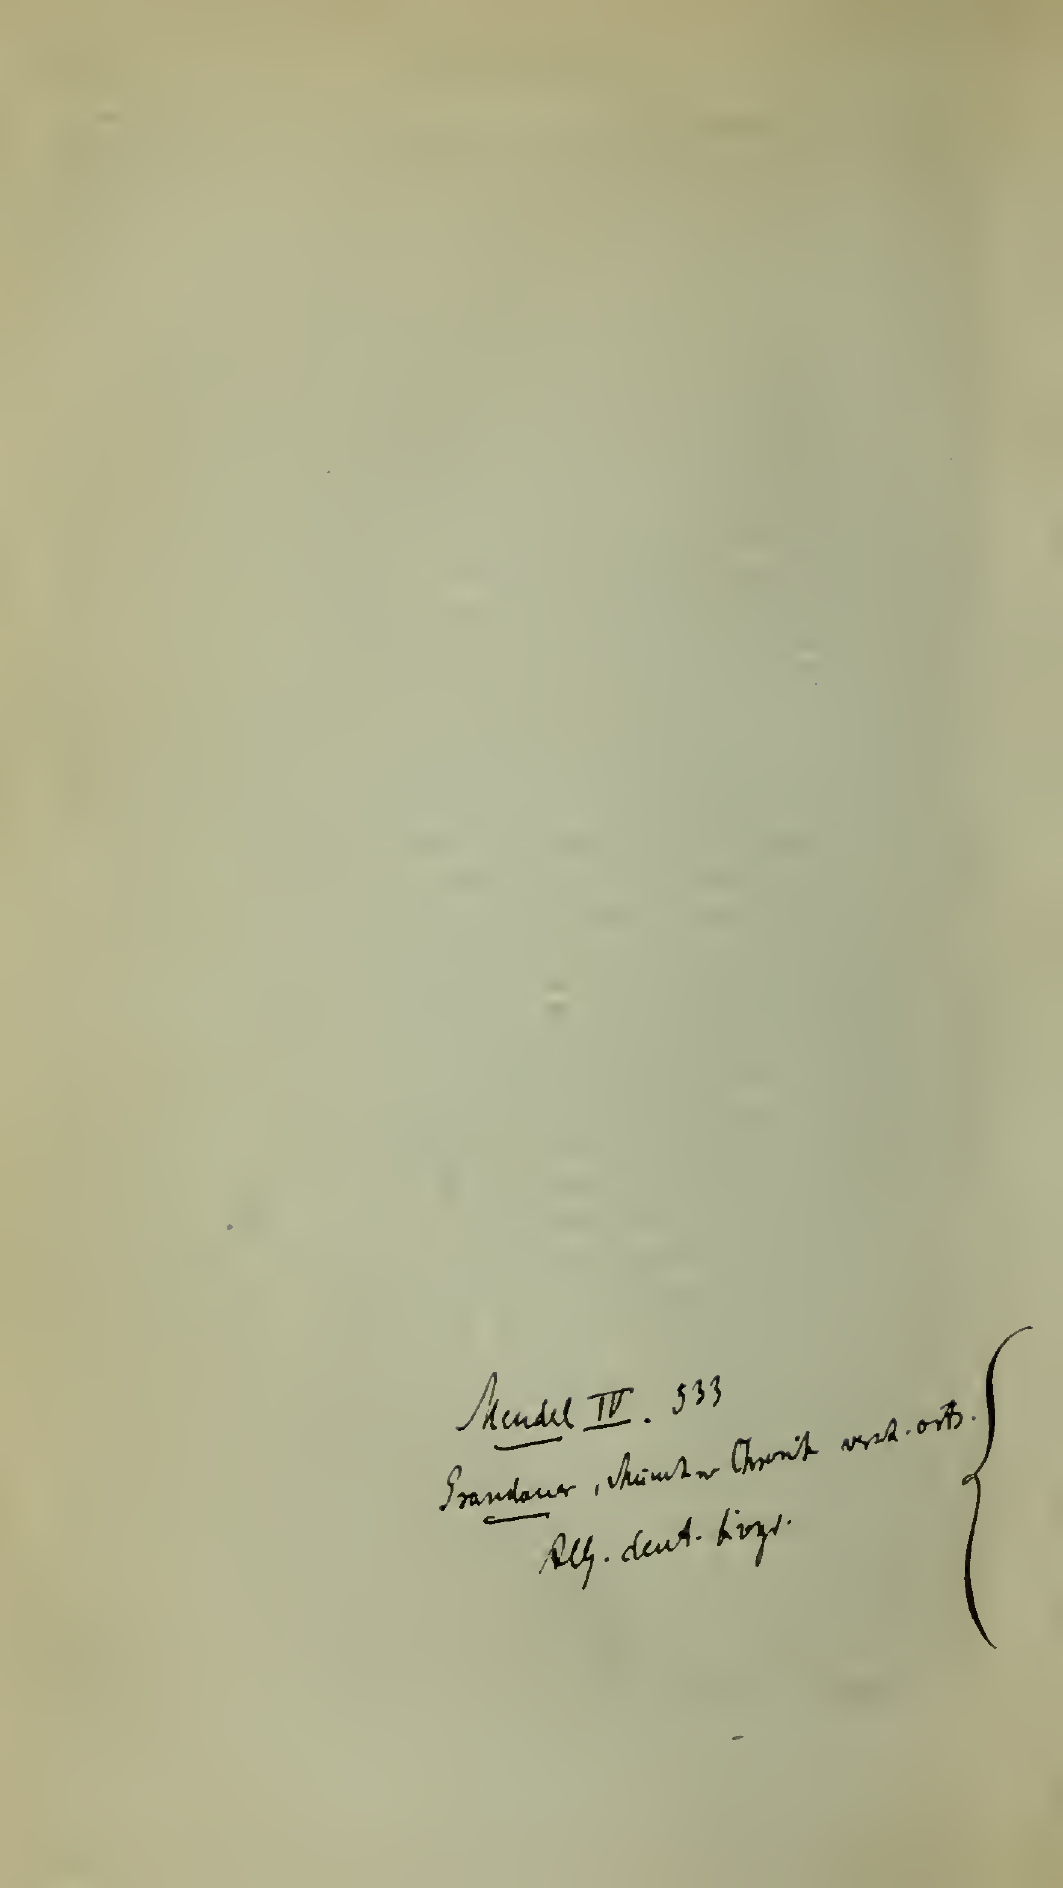 Mendel IV. 533
Grandaur, Münchn Chronik versch. orts.
Allg. deut. biogr.